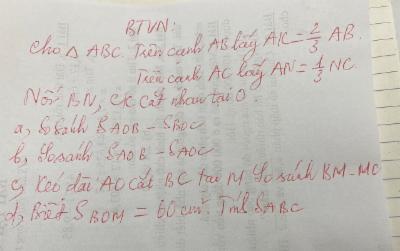 BTVN:
Cho △ ABC. Trên cạnh AB lấy AK = 2/3 AB.
Trên cạnh AC lấy AN = 1/3 NC.
Nối BN, CK cắt nhau tại O.
a, So sánh S AOB - S BOC
b, So sánh S AOB - S AOC
c, Kéo dài AO cắt BC tại M So sánh BM - MC
d, Biết S BOM = 60 cm². Tính S ABC